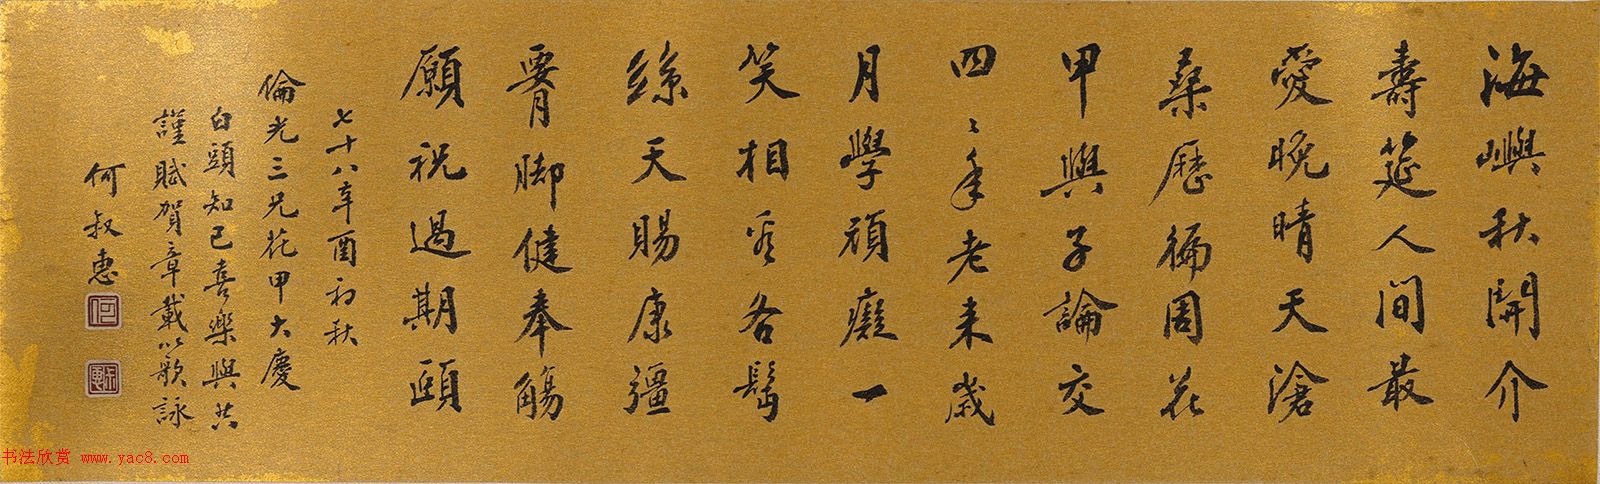 海嶼秋開介
壽筵人間最
愛晚晴天滄
桑歷徧周花
甲與子論交
四〻年老來歲
月學頑癡一
笑相看各髩
絲天賜康彊
腰脚健奉觴
願祝過期頤
七十八辛酉初秋
倫光三兄花甲大慶
白頭知己喜樂與共
謹賦賀章載以歌詠
何叔惠
何
书法欣赏 www.yac8.com